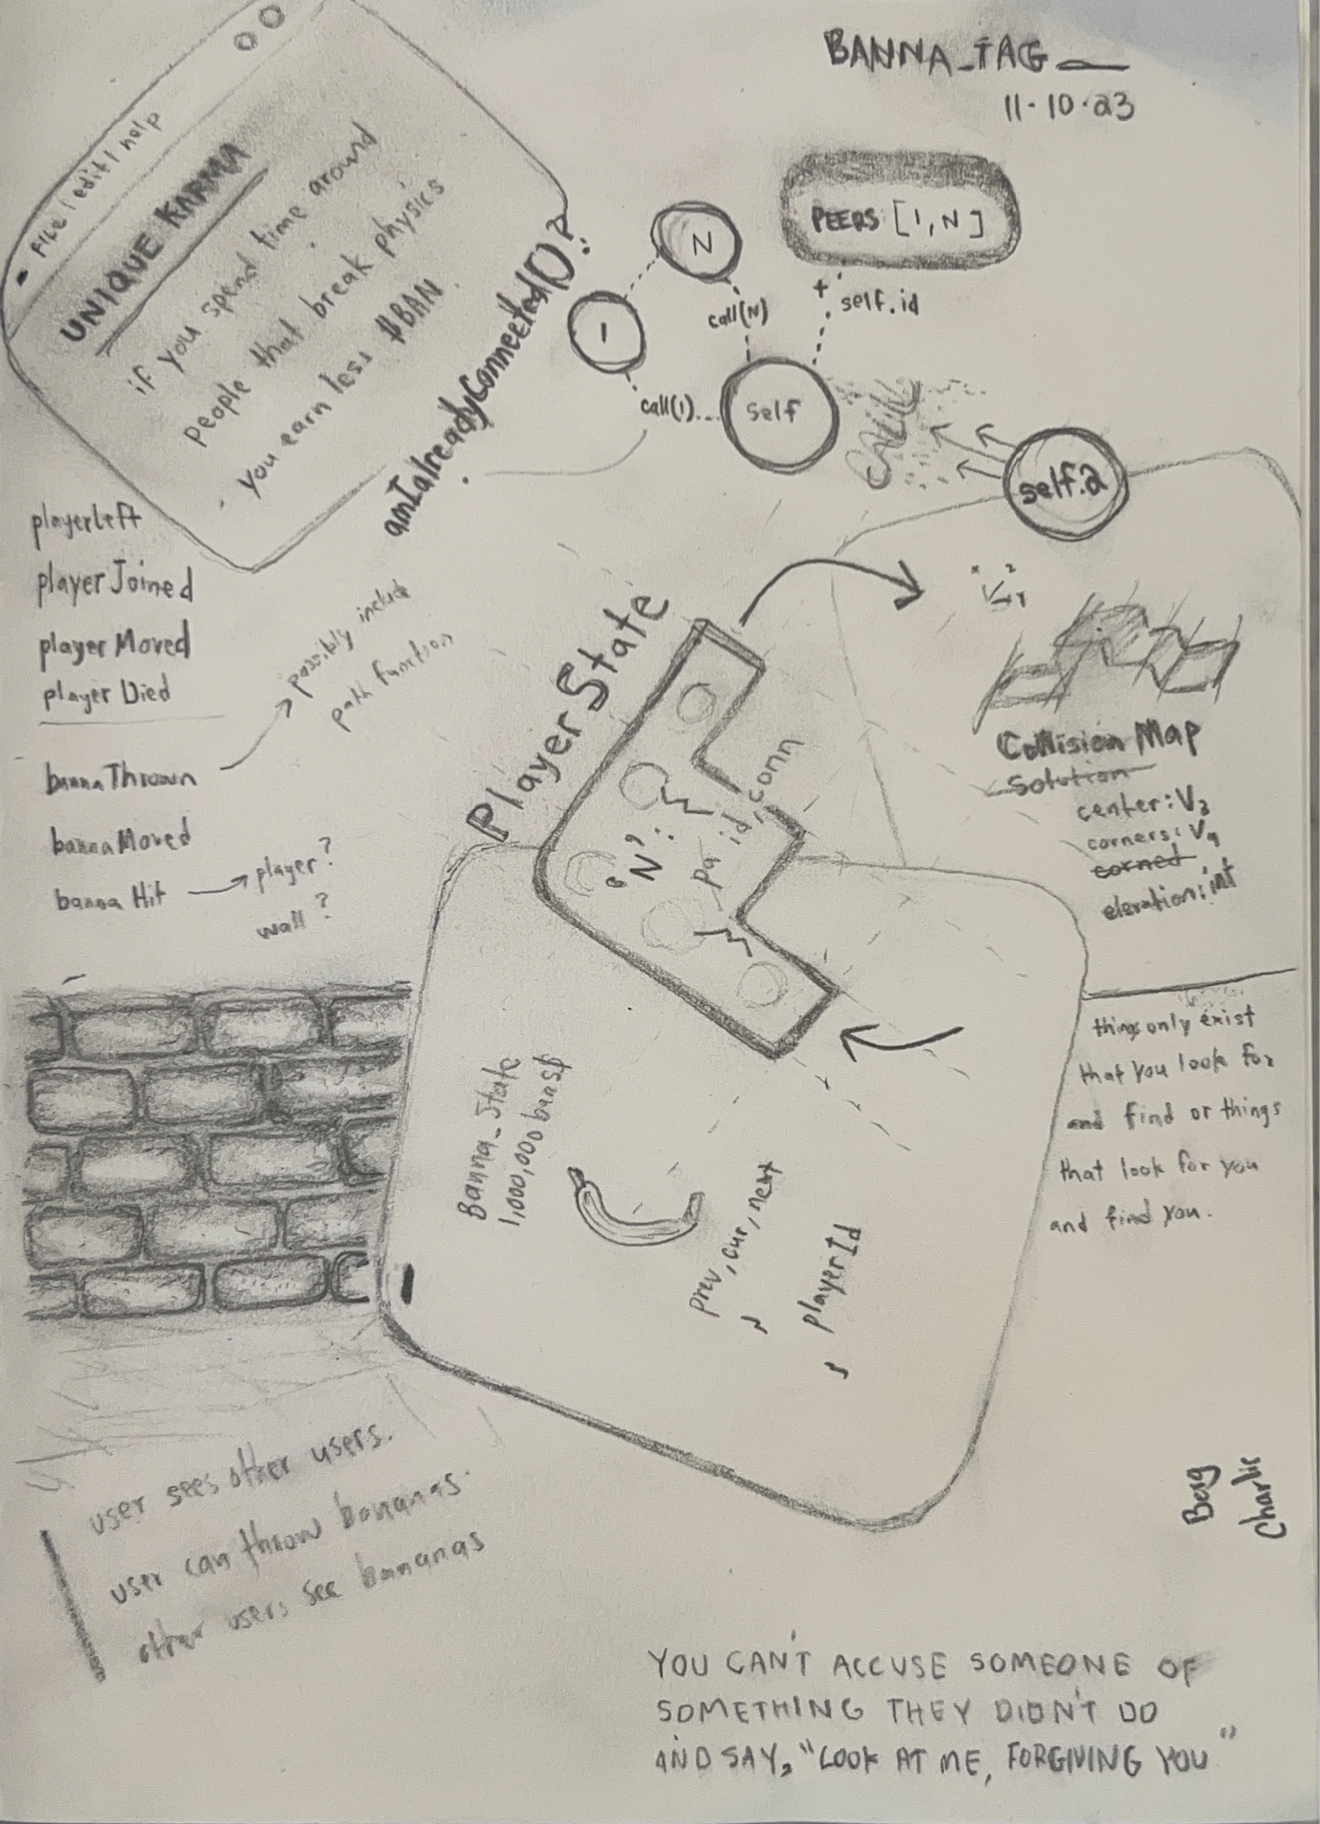 BANNA_TAG__
11·10·23
FILE | edit | help
UNIQUE KARMA
if you spend time around
people that break physics
you earn less $BAN.
amIalreadyConnected()?
PEERS [1,N]
+ self.id
N
1
call(N)
call(1)...
self
self.2
playerLeft
playerJoined
playerMoved
playerDied
bannaThrown
possibly include
path function
bannaMoved
bannaHit
player?
wall?
PlayerState
'N':
id, conn
Collision Map
solution
center: V3
corners: V4
corned
elevation: int
things only exist
that you look for
and find or things
that look for you
and find you.
Banna_State
1,000,000 banst
prev, cur, next
, playerId
user sees other users.
user can throw bananas.
other users see bananas
Berg
Charlie
YOU CAN'T ACCUSE SOMEONE OF
SOMETHING THEY DIDN'T DO
AND SAY, "LOOK AT ME, FORGIVING YOU"